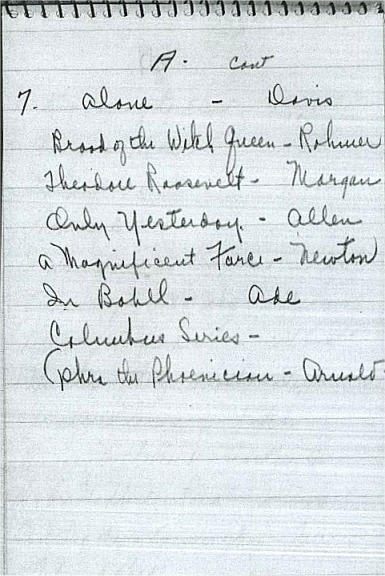 A. Cont
7. Alone - Davis
Brood of the Witch Queen - Rohmer
Theodore Roosevelt - Morgan
Only Yesterday. - Allen
A Magnificent Farce - Newton
In Babel - Ade
Columbus Series -
(Phra the Phoenician - Arnold